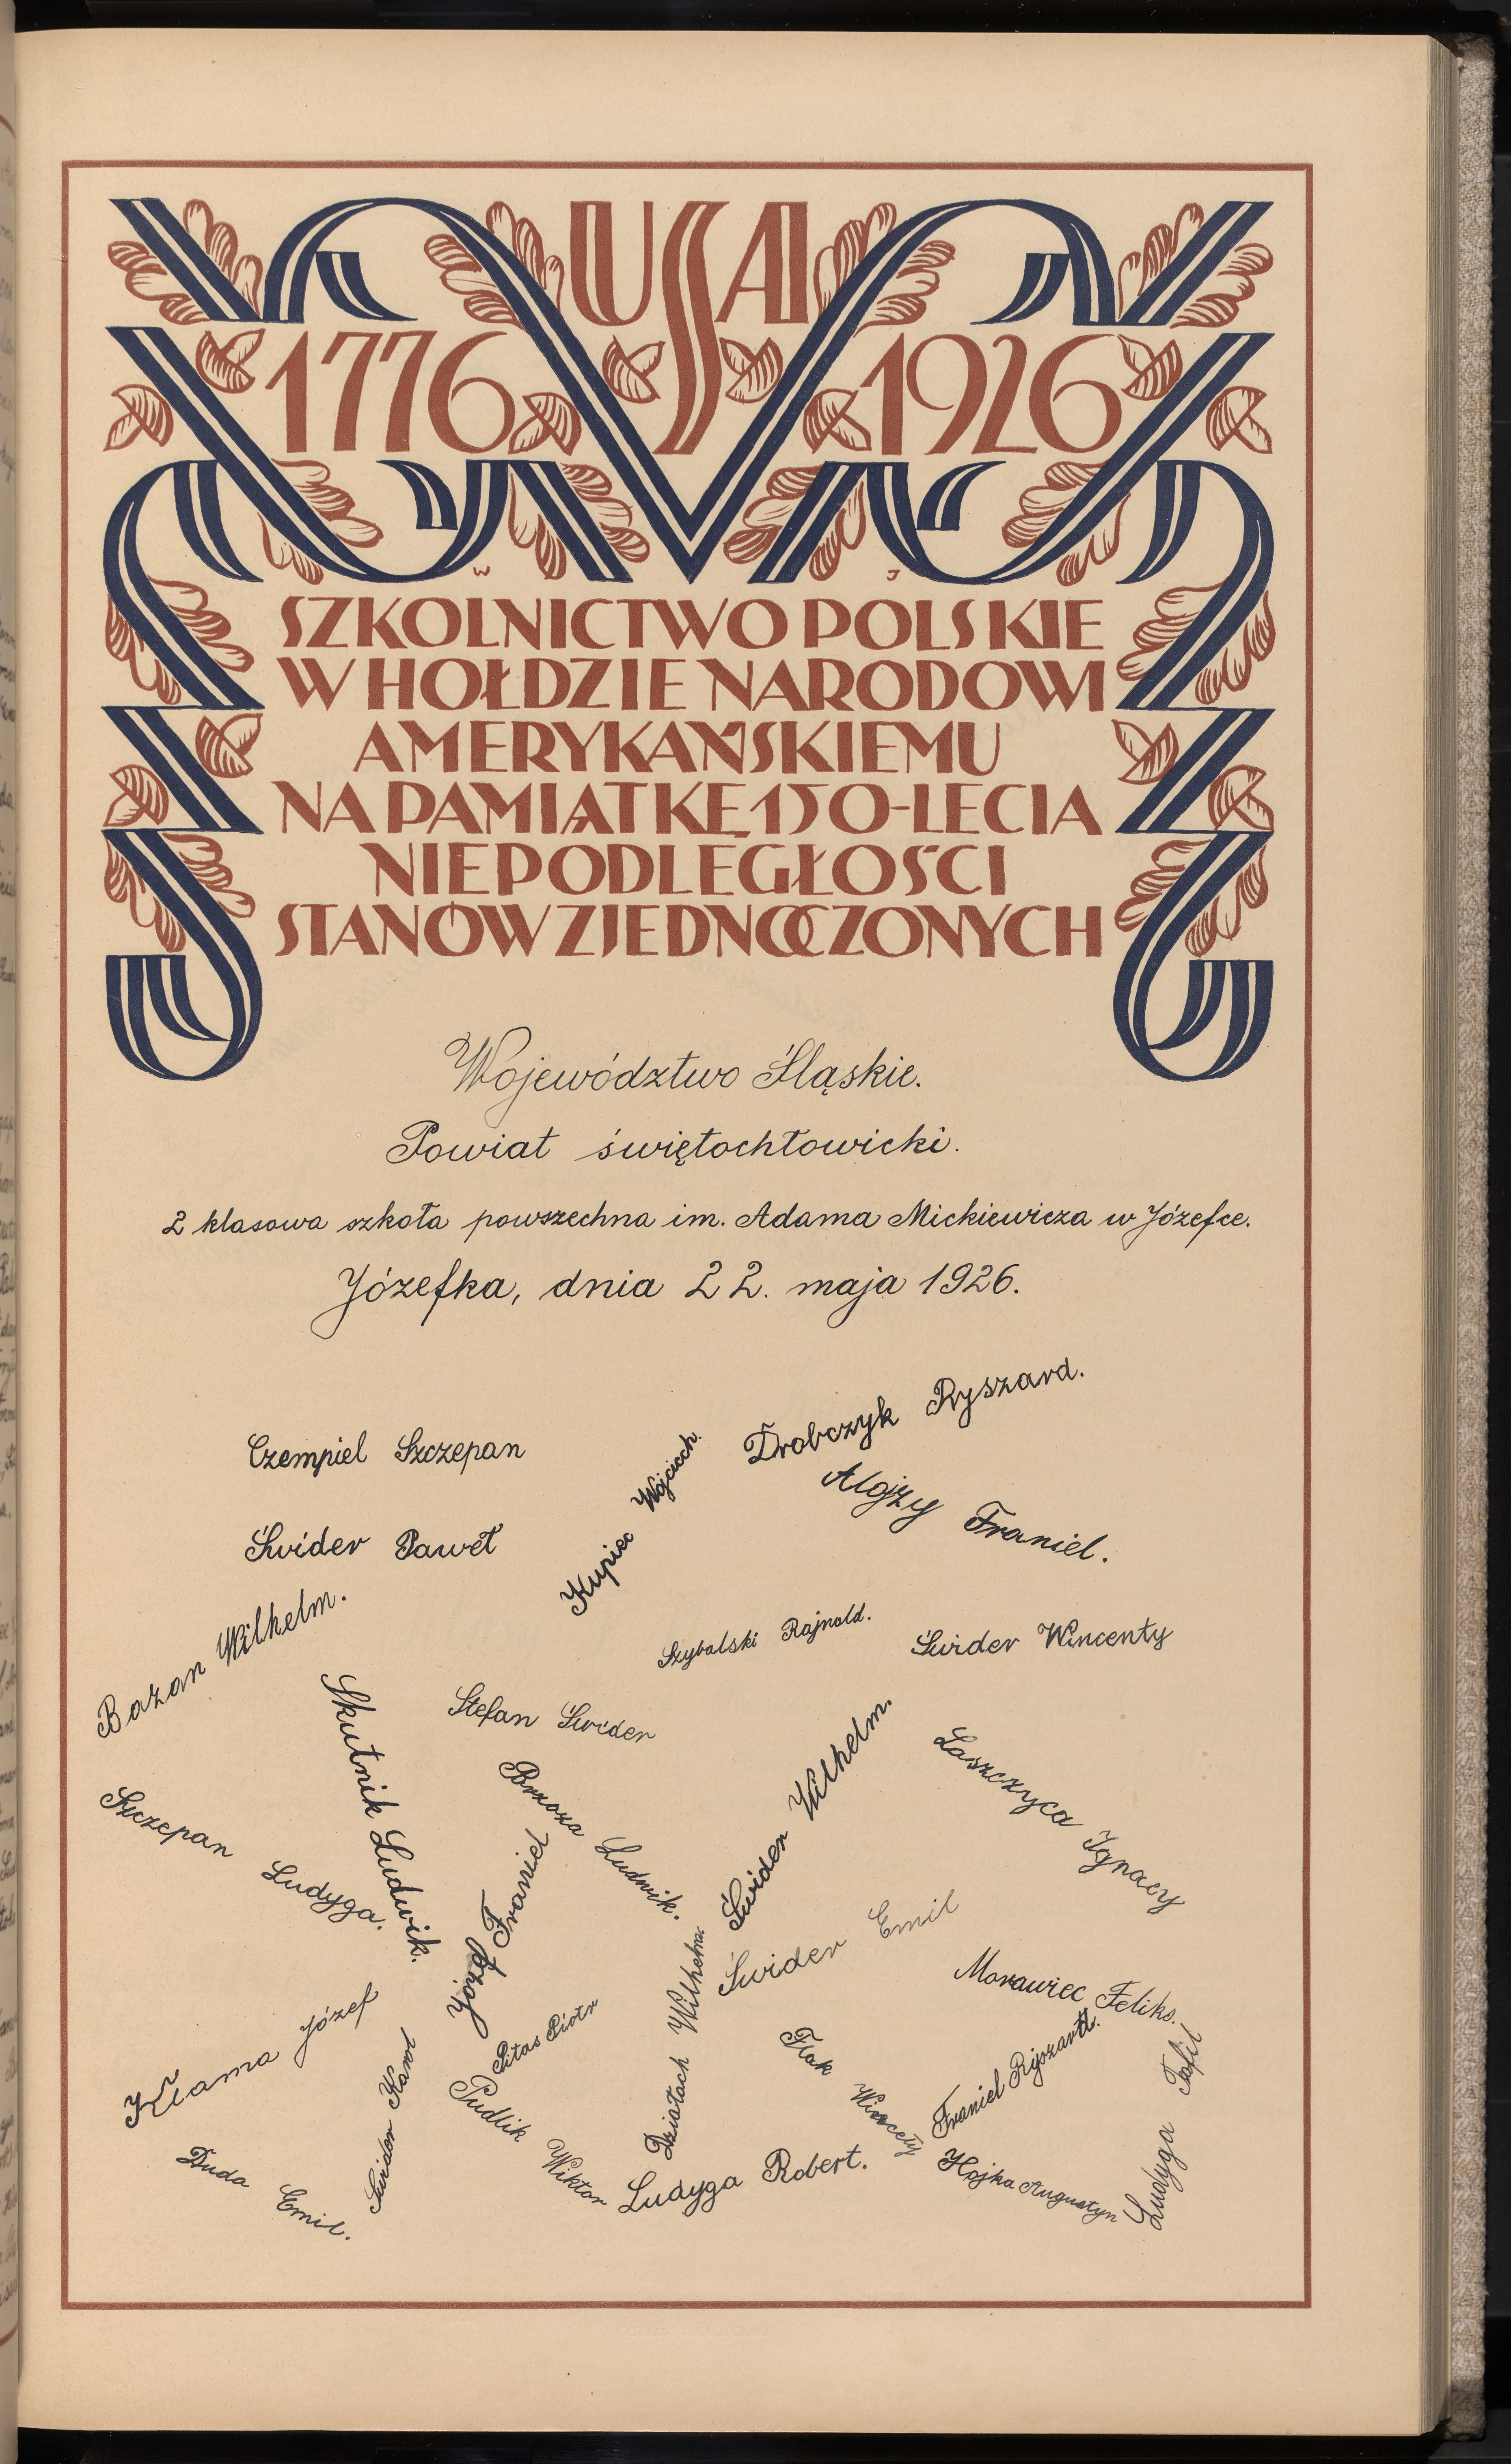 USA
1776 1926
W J
SZKOLNICTWO POLSKIE
W HOŁDZIE NARODOWI
AMERYKAŃSKIEMU
NA PAMIĄTKĘ 150-LECIA
NIEPODLEGŁOŚCI
STANÓW ZJEDNOCZONYCH
Województwo Śląskie.
Powiat świętochłowicki.
2 klasowa szkoła powszechna im. Adama Mickiewicza w Józefce.
Józefka, dnia 22. maja 1926.
Drobczyk Ryszard.
Czempiel Szczepan
Kupiec Wojciech.
Alojzy Franiel.
Świder Paweł
Bazan Wilhelm.
Szybalski Rajnold.
Świder Wincenty
Skutnik Ludwik.
Stefan Świder
Świder Wilhelm.
Laszczyca Ignacy
Brzoza Ludwik.
Szczepan Ludyga.
Józef Franiel
Świder Emil
Morawiec Feliks.
Kłama Józef
Pitas Piotr
Działach Wilhelm
Flak Wincety
Franiel Ryszard.
Ludyga Tofil
Świder Karol
Pudlik Wiktor
Duda Emil.
Ludyga Robert.
Hojka Augustyn